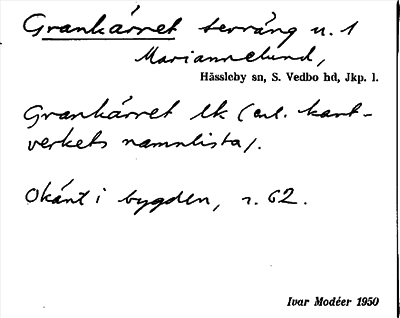 Grankärret terräng n. 1
Mariannelund,
Hässleby sn, S. Vedbo hd, Jkp. l.
Grankärret lk (enl. kart-
verkets namnlista).
Okänt i bygden, r. 62.
Ivar Modéer 1950